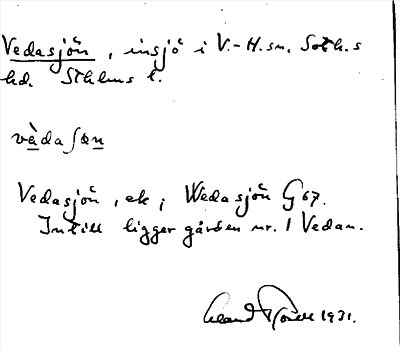 Vedasjön, insjö i V.-H. sn. Soth.s
hd. Sthlms l.
vàdaʃœn
Vedasjön, ek; Wedasjön G 67.
Intill ligger gården nr. 1 Vedan.
1931.